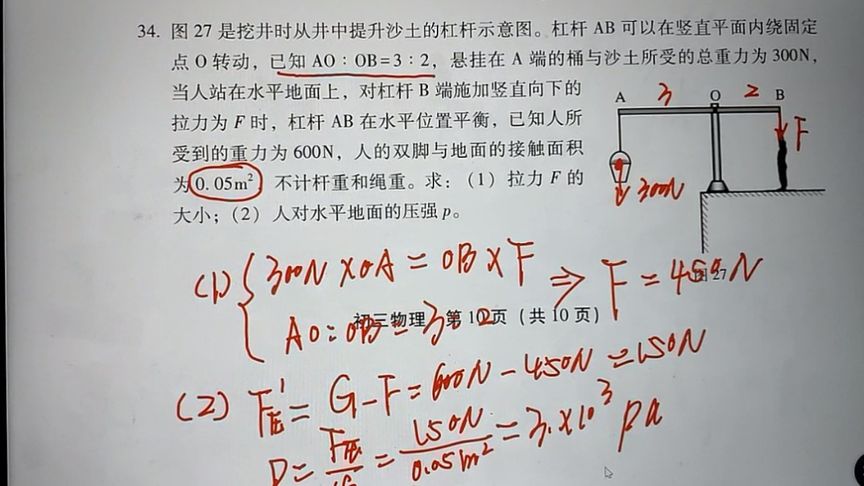 34. 图 27 是挖井时从井中提升沙土的杠杆示意图。杠杆 AB 可以在竖直平面内绕固定
点 O 转动，已知 AO：OB=3：2，悬挂在 A 端的桶与沙土所受的总重力为 300N，
当人站在水平地面上，对杠杆 B 端施加竖直向下的
拉力为 F 时，杠杆 AB 在水平位置平衡，已知人所
受到的重力为 600N，人的双脚与地面的接触面积
为 0.05m²，不计杆重和绳重。求：（1）拉力 F 的
大小；（2）人对水平地面的压强 p。
A 3 O 2 B
F
300N
图 27
(1) { 300N×OA = OB×F ⇒ F = 450N
AO：OB = 3：2
初三物理 第 10 页（共 10 页）
(2) F压' = G-F = 600N - 450N = 150N
P = F压 = 150N/0.05m² = 3.×10³ pa